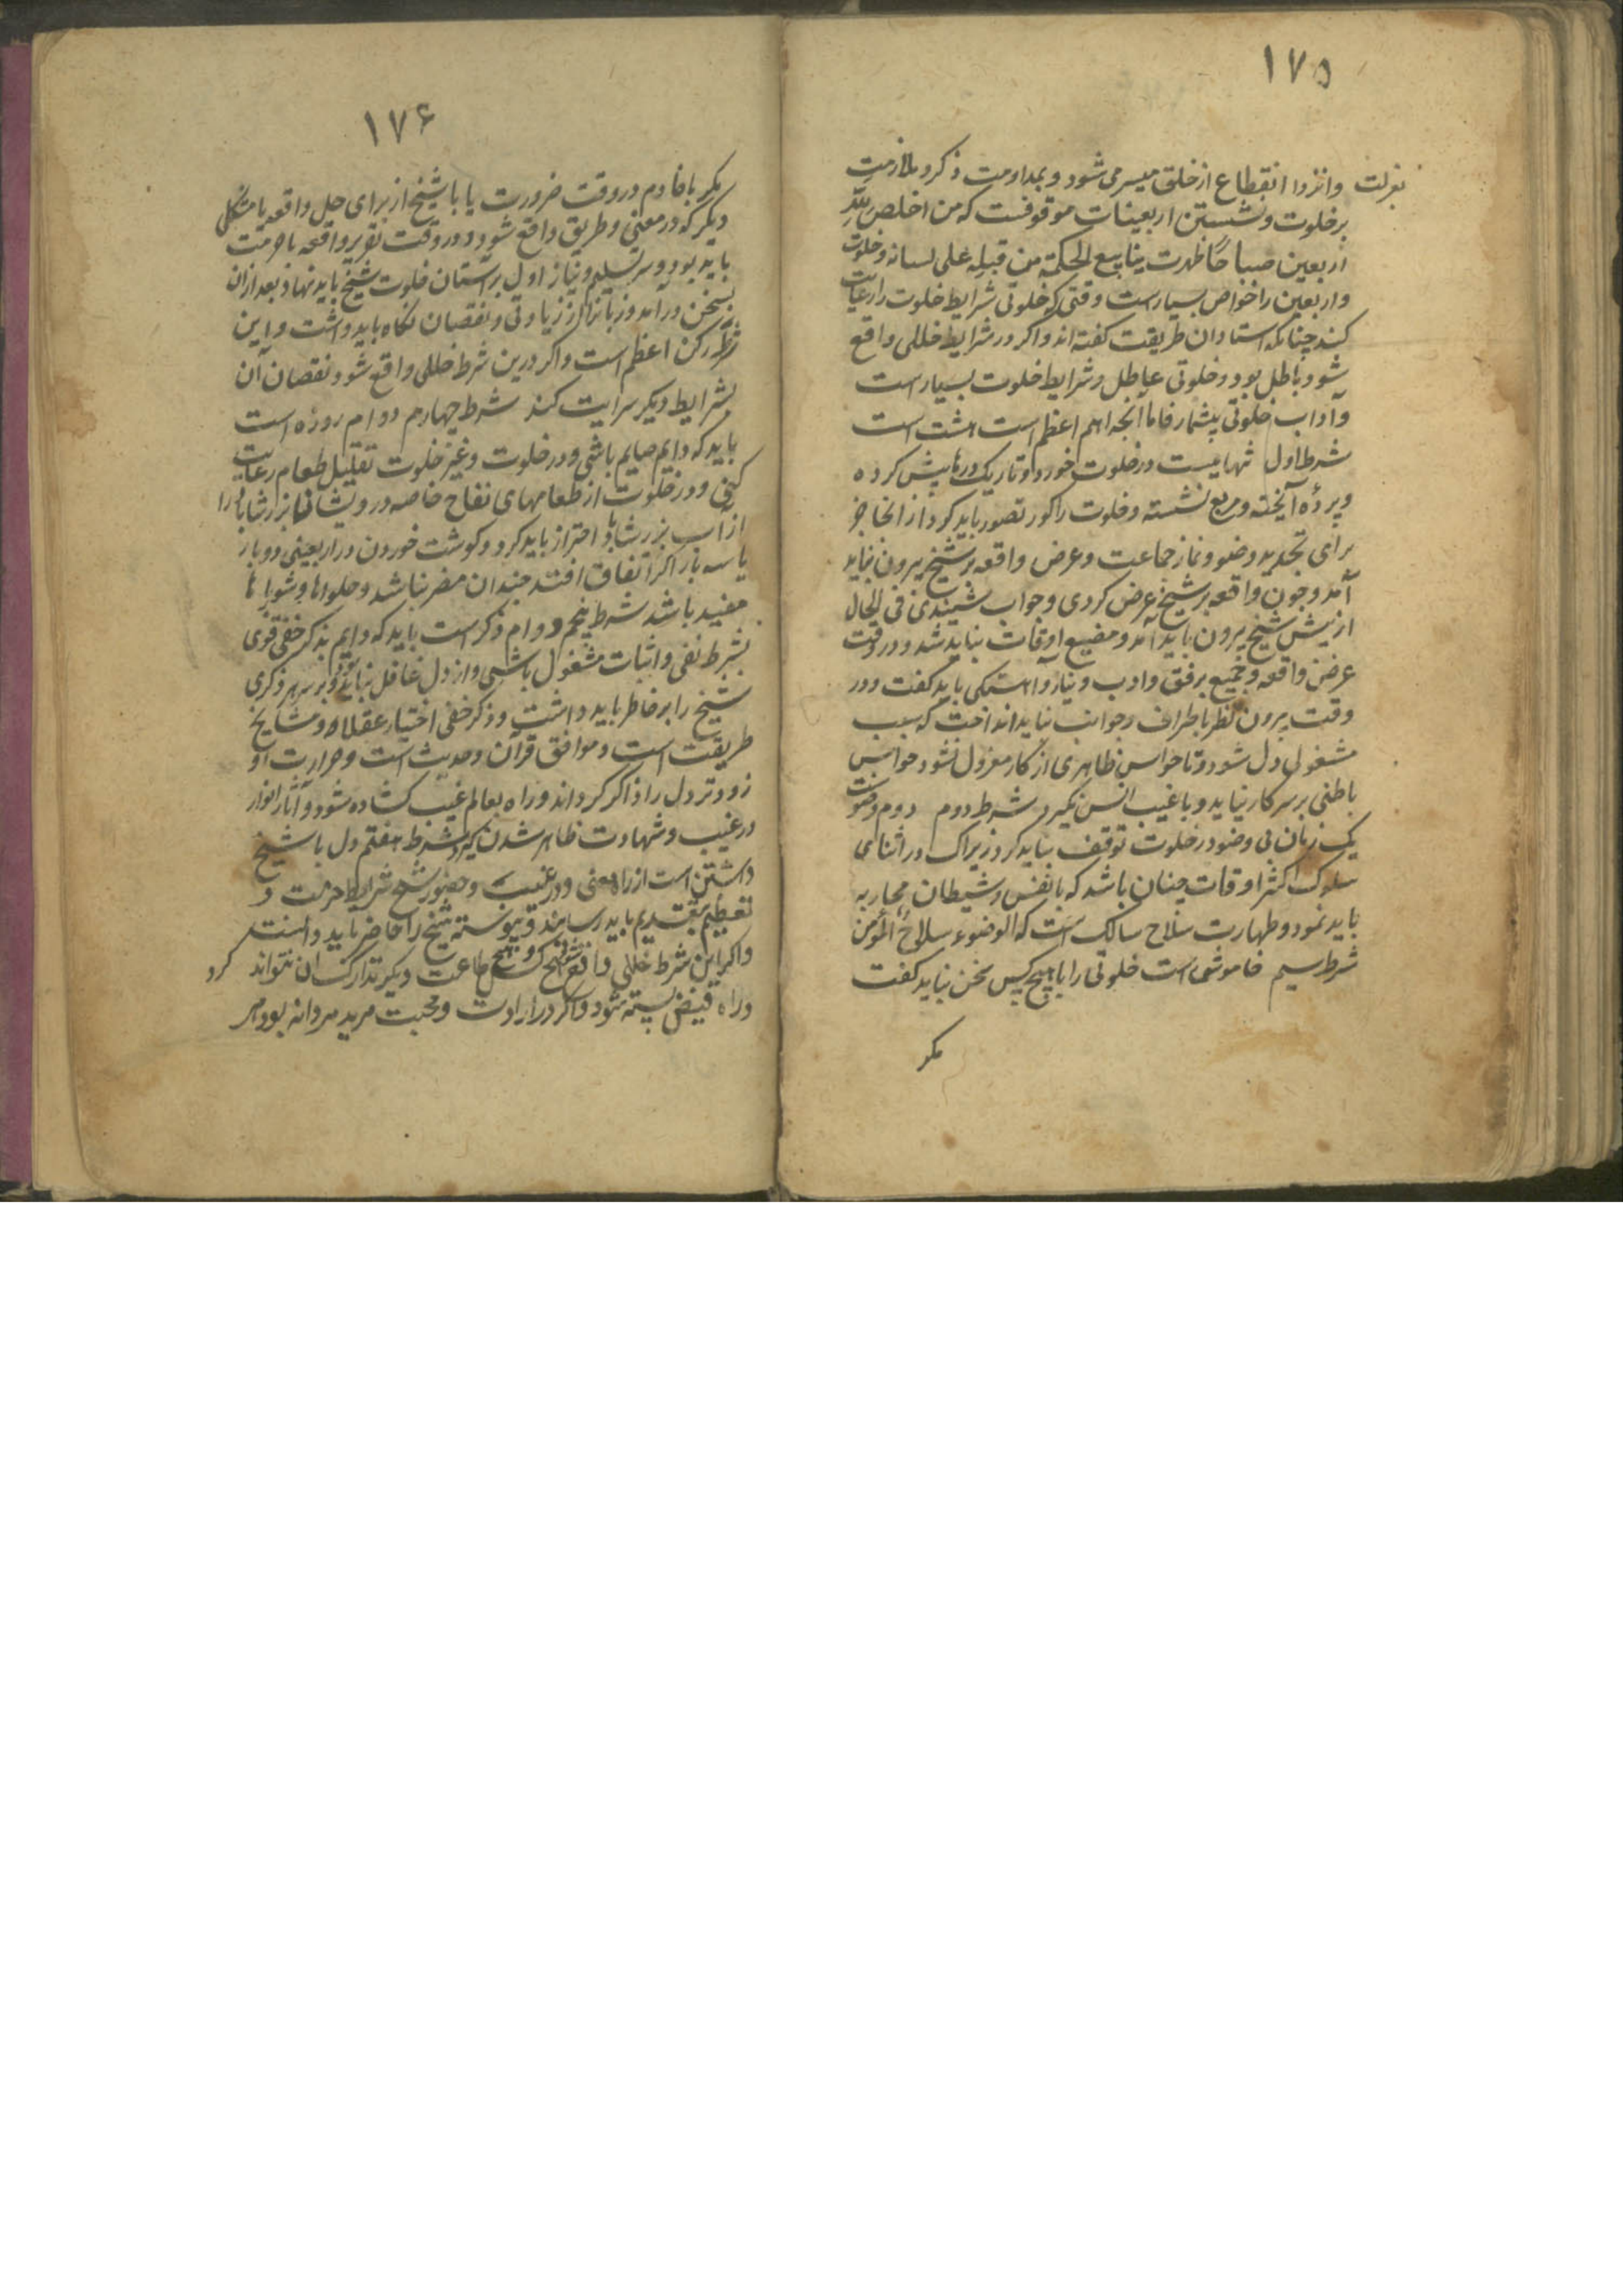 ۱۷۵
بعزلت وانزوا انقطاع از خلق میسر می شود و بمداومت ذکر و ملازمت
بر خلوت و نشستن اربعینات موقوفست که من اخلص لله
اربعین صباحا ظهرت ینابیع الحکمة من قبله علی لسانه و خلوت
و اربعین را خواص بسیارست وقتی که خلوتی شرایط خلوت را رعایت
کند چنانکه استادان طریقت کفته اند و اکر در شرایط خللی واقع
شود باطل بود و خلوتی عاطل و شرایط خلوت بسیار است
و آداب خلوتی بیشمار فاما آنچه اهم اعظم است هشت است
شرط اول تنهاییست در خلوت خورد و تاریک درها پیش کرده
و پرده آویخته و مربع نشسته و خلوت را کور تصور باید کرد از انجا جز
برای تجدید وضو و نماز جماعت و عرض واقعه بر شیخ بیرون نباید
آمد و چون واقعه بر شیخ عرض کردی و جواب شنیدی فی الحال
از پیش شیخ بیرون باید آمد و مضیع اوقات نباید شد و در وقت
عرض واقعه و جمیع برفق و ادب و نیاز و آهستکی باید کفت و در
وقت بیرون نظر باطراف و جوانب نباید انداخت که سبب
مشغولی دل شود و تا حواس ظاهری از کار معزول نشود حواس
باطنی بر سر کار نیاید و با غیب انس نکیرد شرط دوم دوام وضوست
یک زمان بی وضو در خلوت توقف نباید کرد زیراک در اثنای
سلوک اکثر اوقات چنان باشد که با نفس و شیطان محاربه
باید نمود و طهارت سلاح سالک است که الوضوء سلاح المؤمن
شرط سیم خاموشی است خلوتی را با هیچ کس سخن نباید کفت
مکر
۱۷۶
مکر با خادم در وقت ضرورت یا با شیخ از برای حل واقعه یا مشکلی
دیکر که در معنی و طریق واقع شود و در وقت تقریر واقعه با حرمت
باید بود و سر تسلیم و نیاز اول بر آستان خلوت شیخ باید نهاد بعد از ان
بسخن در آمد و زبانرا از زیادتی و نقصان نکاه باید داشت و این
شرط رکن اعظم است و اکر درین شرط خللی واقع شود نقصان آن
بشرایط دیکر سرایت کند شرط چهارم دوام روزه است
باید که دایم صایم باشی و در خلوت و غیر خلوت تقلیل طعام رعایت
کنی و در خلوت از طعامهای نفاخ خاصه درویشان
از آب احتراز باید کرد و کوشت خوردن در اربعینی دو بار
یا سه بار اکر اتفاق افتد چندان مضر نباشد و حلواها و شورباها
مفید باشد شرط پنجم دوام ذکر است باید که دایم بذکر خفی قوی
بشرط نفی و اثبات مشغول باشی و از دل غافل نباید بود و بر سر هر ذکری
شیخ را بر خاطر باید داشت و ذکر خفی اختیار عقلا و مشایخ
طریقت است و موافق قرآن و حدیث است و حرارت او
زودتر دل را ذاکر کرداند و راه بعالم غیب کشاده شود و آثار انوار
در غیب و شهادت ظاهر شدن کیرد شرط هفتم دل با شیخ
داشتن است از راه معنی و در غیبت و حضور شیخ شرایط حرمت و
تعظیم بتقدیم باید رسانید و پیوسته شیخ را حاضر باید دانست
و اکر این شرط خللی واقع شود هیچ کس و بهیچ طاعت دیکر تدارک ان نتواند کرد
و راه فیض بسته شود و اکر در ارادت و محبت مرید مردانه بود هر